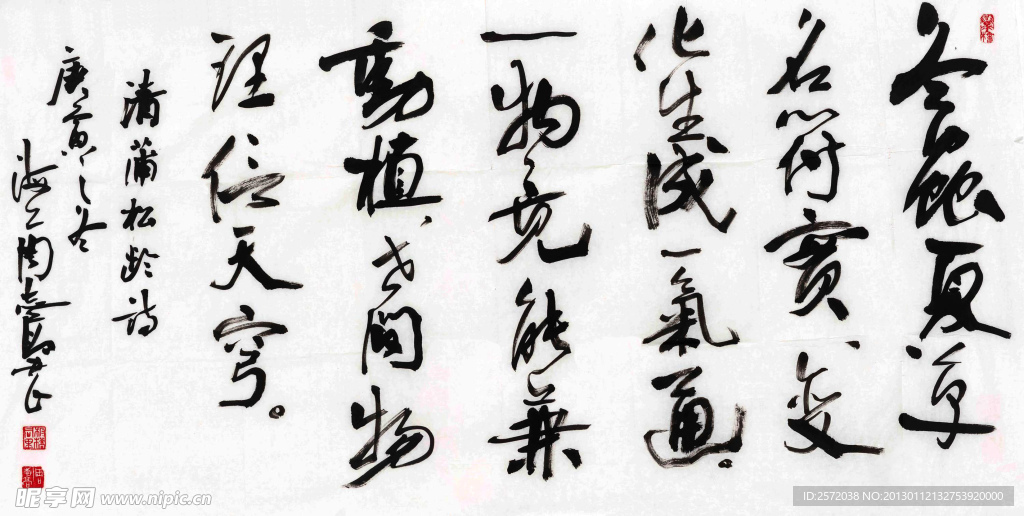 冬蟲夏草
名符實变
化生成一氣通。
一物竟能兼
動植、世間物
理信天穹。
清蒲松龄诗
庚寅之冬
海上陶
昵享网 www.nipic.cn
ID:2572038 NO:20130112132753920000